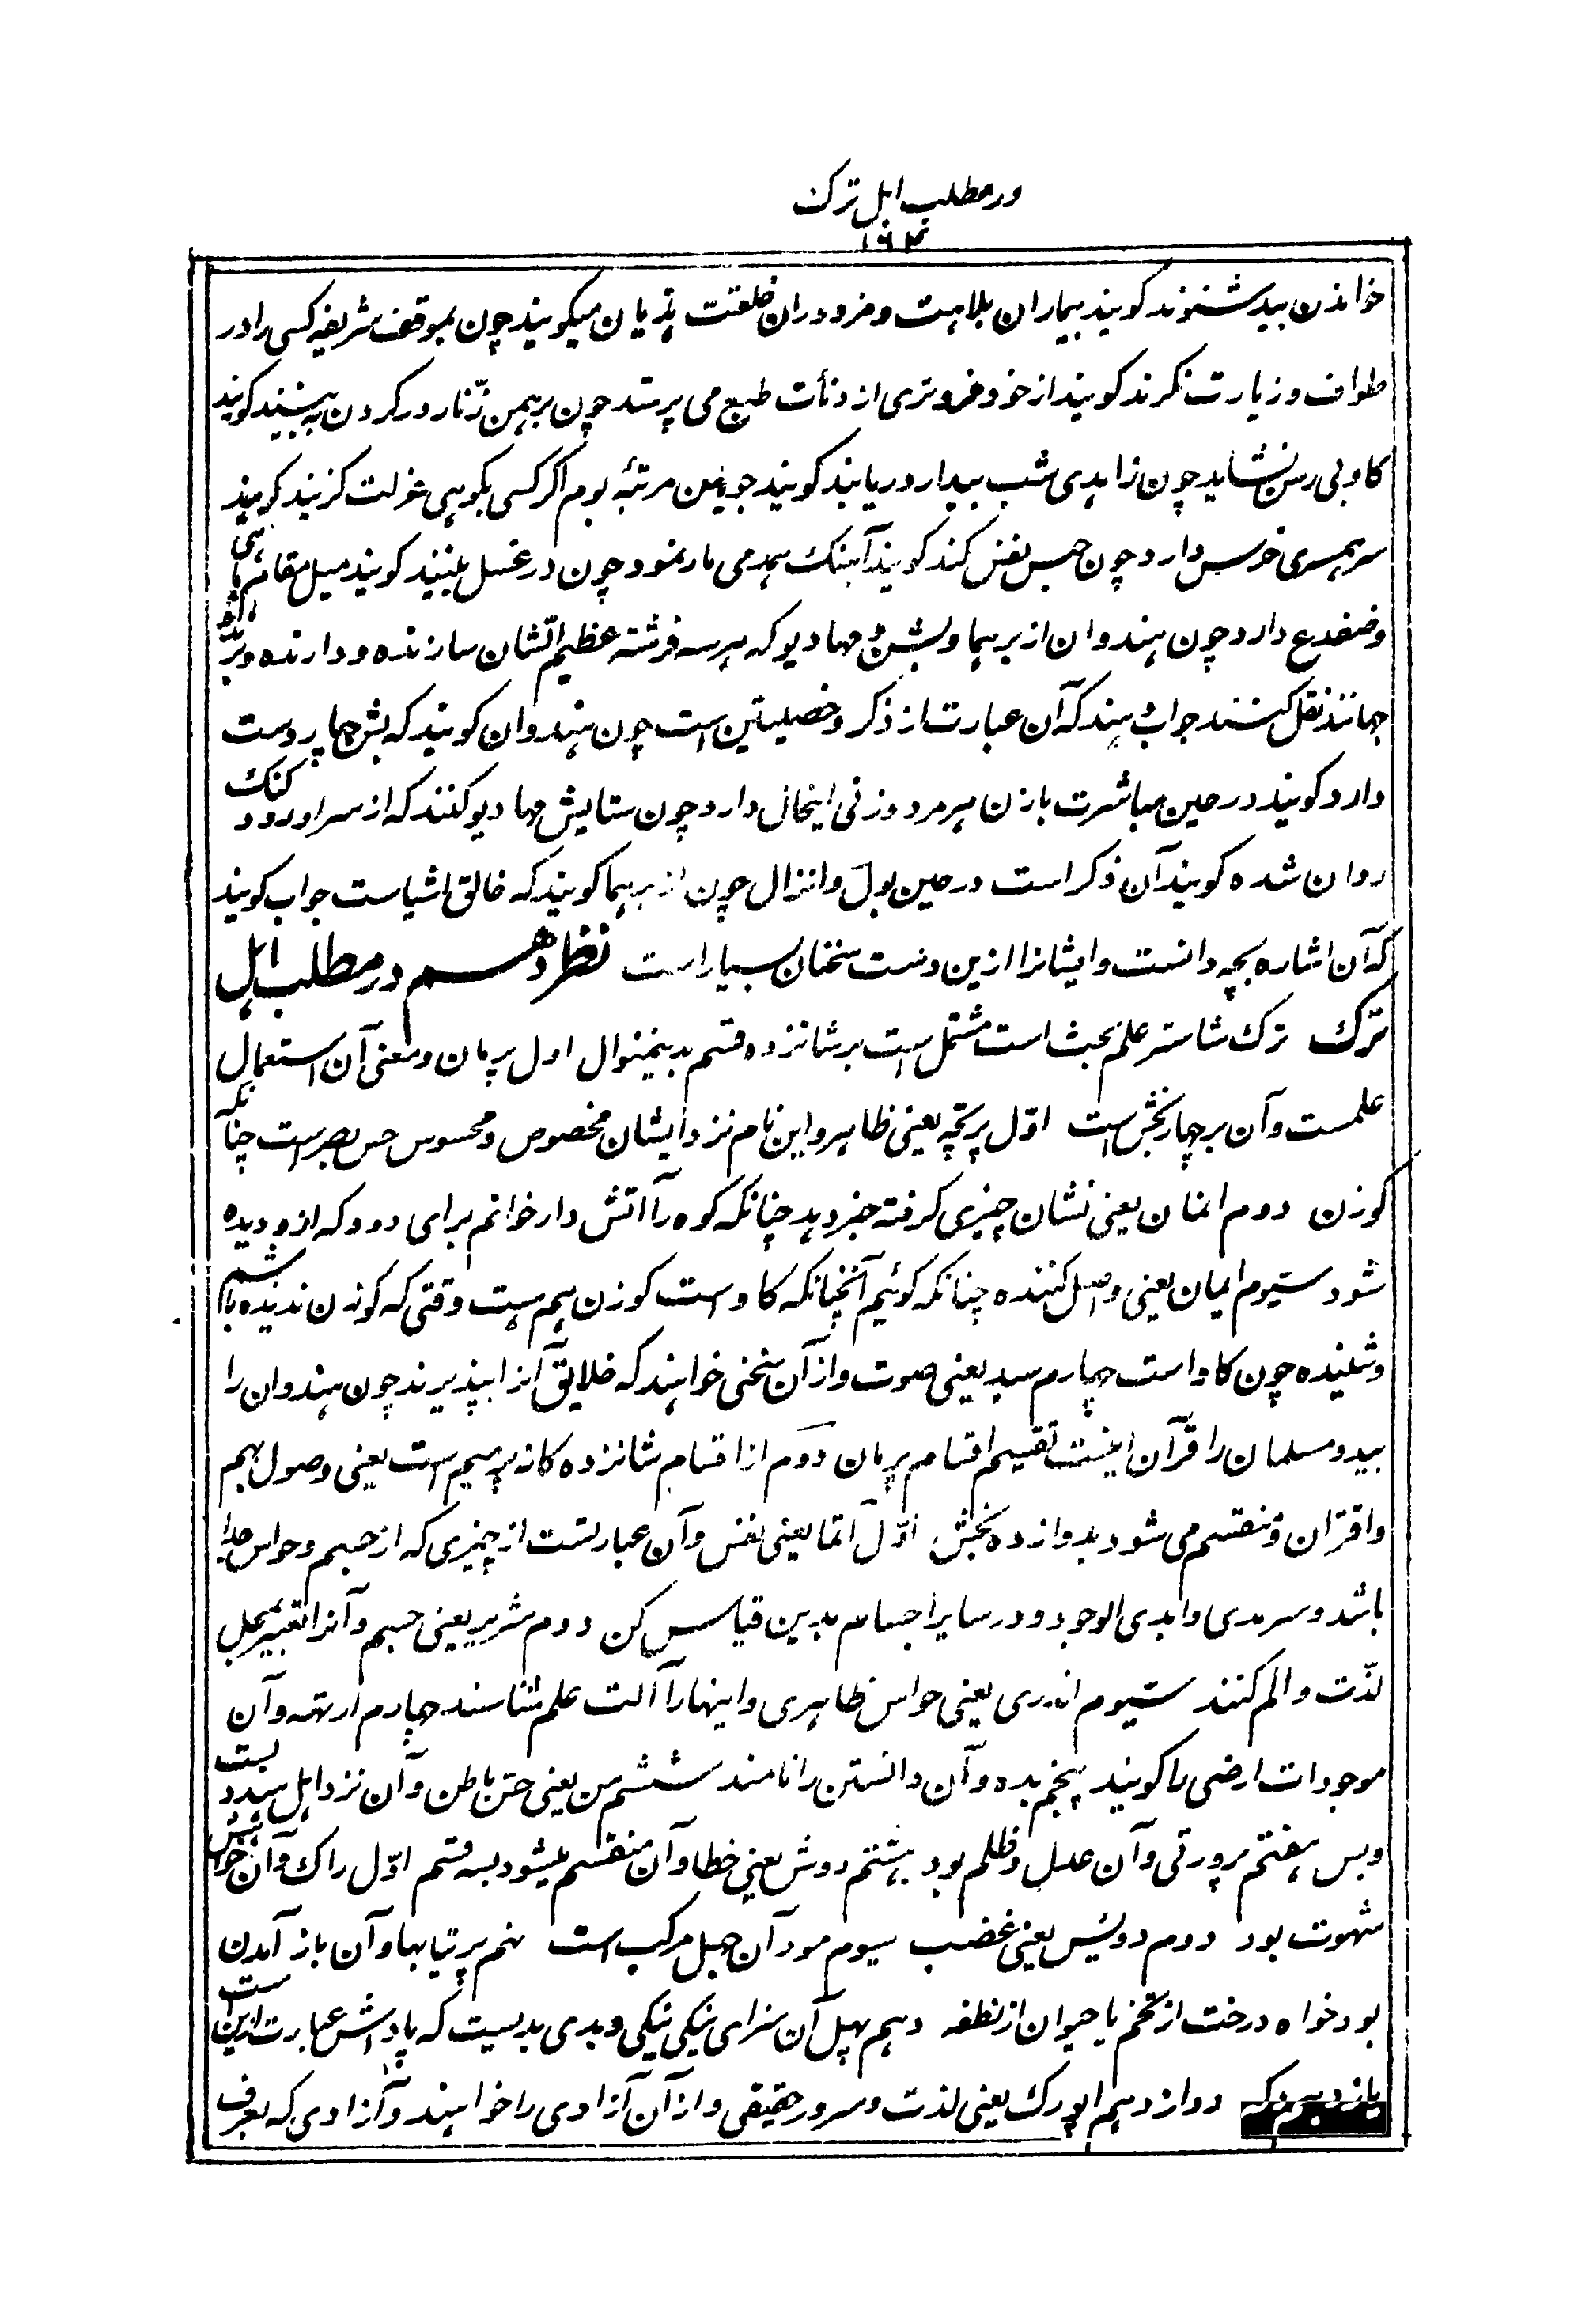 در مطلب اہل ترک
۱۶۴
خواندن بید شنوند کویند بیماران بلاہت و مزدوران خلقتت ہذیان میکویند چون بموقف شریفہ کسی را در
طواف و زیارت نکرند کویند از خود فروتری از دنأت طبع می پرستد چون برہمن زنّار در کردن بہ بینند کویند
کاو بی رسن نشاید چون زاہدی شب بیدار دریابند کویند جویند مین مرتبۂ بوم اکر کسی بکوہی عزلت کزیند کویند
سر ہمسری خرس دارد چون حبس نفس کند کویند آہنک ہمدمی مار نمود چون در غسل بینند کویند میل مقام ماہی
وضفدع دارد چون ہندوان از برہما و بشن و مہادیو کہ ہر سہ فرشتہ عظیم الشّان سازندہ و دارندہ و برندہ
جہانند نقل کنند جواب دہند کہ آن عبارت از ذکر و خصیتین است چون ہندوان کویند کہ بشن چہار دست
دارد کویند در حین مباشرت با زن ہر مرد و زنی اینحال دارد چون ستایش مہادیو کنند کہ از سر او رود کنک
روان شدہ کویند آن ذکر است در حین بول و انزال چون از برہما کویند کہ خالق اشیاست جواب کویند
کہ آن اشارہ بچہ دانست و ایشانرا ازین دست سخنان بسیار است نظر دہم در مطلب اہل
ترک ترک شاستر علم بحث است مشتمل است بر شانزدہ قسم بدینمنوال اول پرمان و معنی آن استعمال
علمست و آن بر چہار بخش است اوّل پرتچہ یعنی ظاہر و این نام نزد ایشان مخصوص و محسوس حس بصر است چنانکہ
کوزن دوم انمان یعنی نشان چیزی کرفتہ خبر دہد چنانکہ کوہ را آتش دار خوانم برای دود کہ ازو دیدہ
شود سیوم اپمان یعنی وصل کنندہ چنانکہ کوئیم آنچنانکہ کاو است کوزن ہم ہست وقتی کہ کوزن ندیدہ باشم
و شنیدہ چون کاو است چہارم سبد یعنی صوت و از آن سخنی خواہند کہ خلایق آنرا بپذیرند چون ہندوان را
بید و مسلمان را قرآن اینست تقسیم اقسام پرمان دوم از اقسام شانزدہ کانہ پرمیم است یعنی وصول بہم
و اقتران و منقسم می شود بدوازدہ بخش اوّل آتما یعنی نفس و آن عبارتست از چیزی کہ از جسم و حواس جدا
باشد و سرمدی و ابدی الوجود و در سایر اجسام بدین قیاس کن دوم شریر یعنی جسم و آنرا تعبیر بمحل
لذّت و الم کنند سیوم اندری یعنی حواس ظاہری و اینہا را آلت علم شناسند چہارم ارتہہ و آن
موجودات ارضی را کویند پنجم بدہ و آن دانستن را نامند ششم من یعنی حسّ باطن و آن نزد اہل بست
و بس ہفتم پرورتی و آن عدل و ظلم بود ہشتم دوش یعنی خطا و آن منقسم میشود بسہ قسم اوّل راک و آن خواہش
شہوت بود دوم دویس یعنی غضب سیوم مود آن جہل مرکب است نہم پرتیابہا و آن باز آمدن
بود خواہ درخت از تخم یا حیوان از نطفہ دہم پہل آن سزای نیکی نیکی و بدی بدیست کہ پاداش عبارت ازین است
یازدہم دکہہ دوازدہم اپورک یعنی لذت و سرور حقیقی و از آن آزادی را خواہند و آزادی کہ بعرف